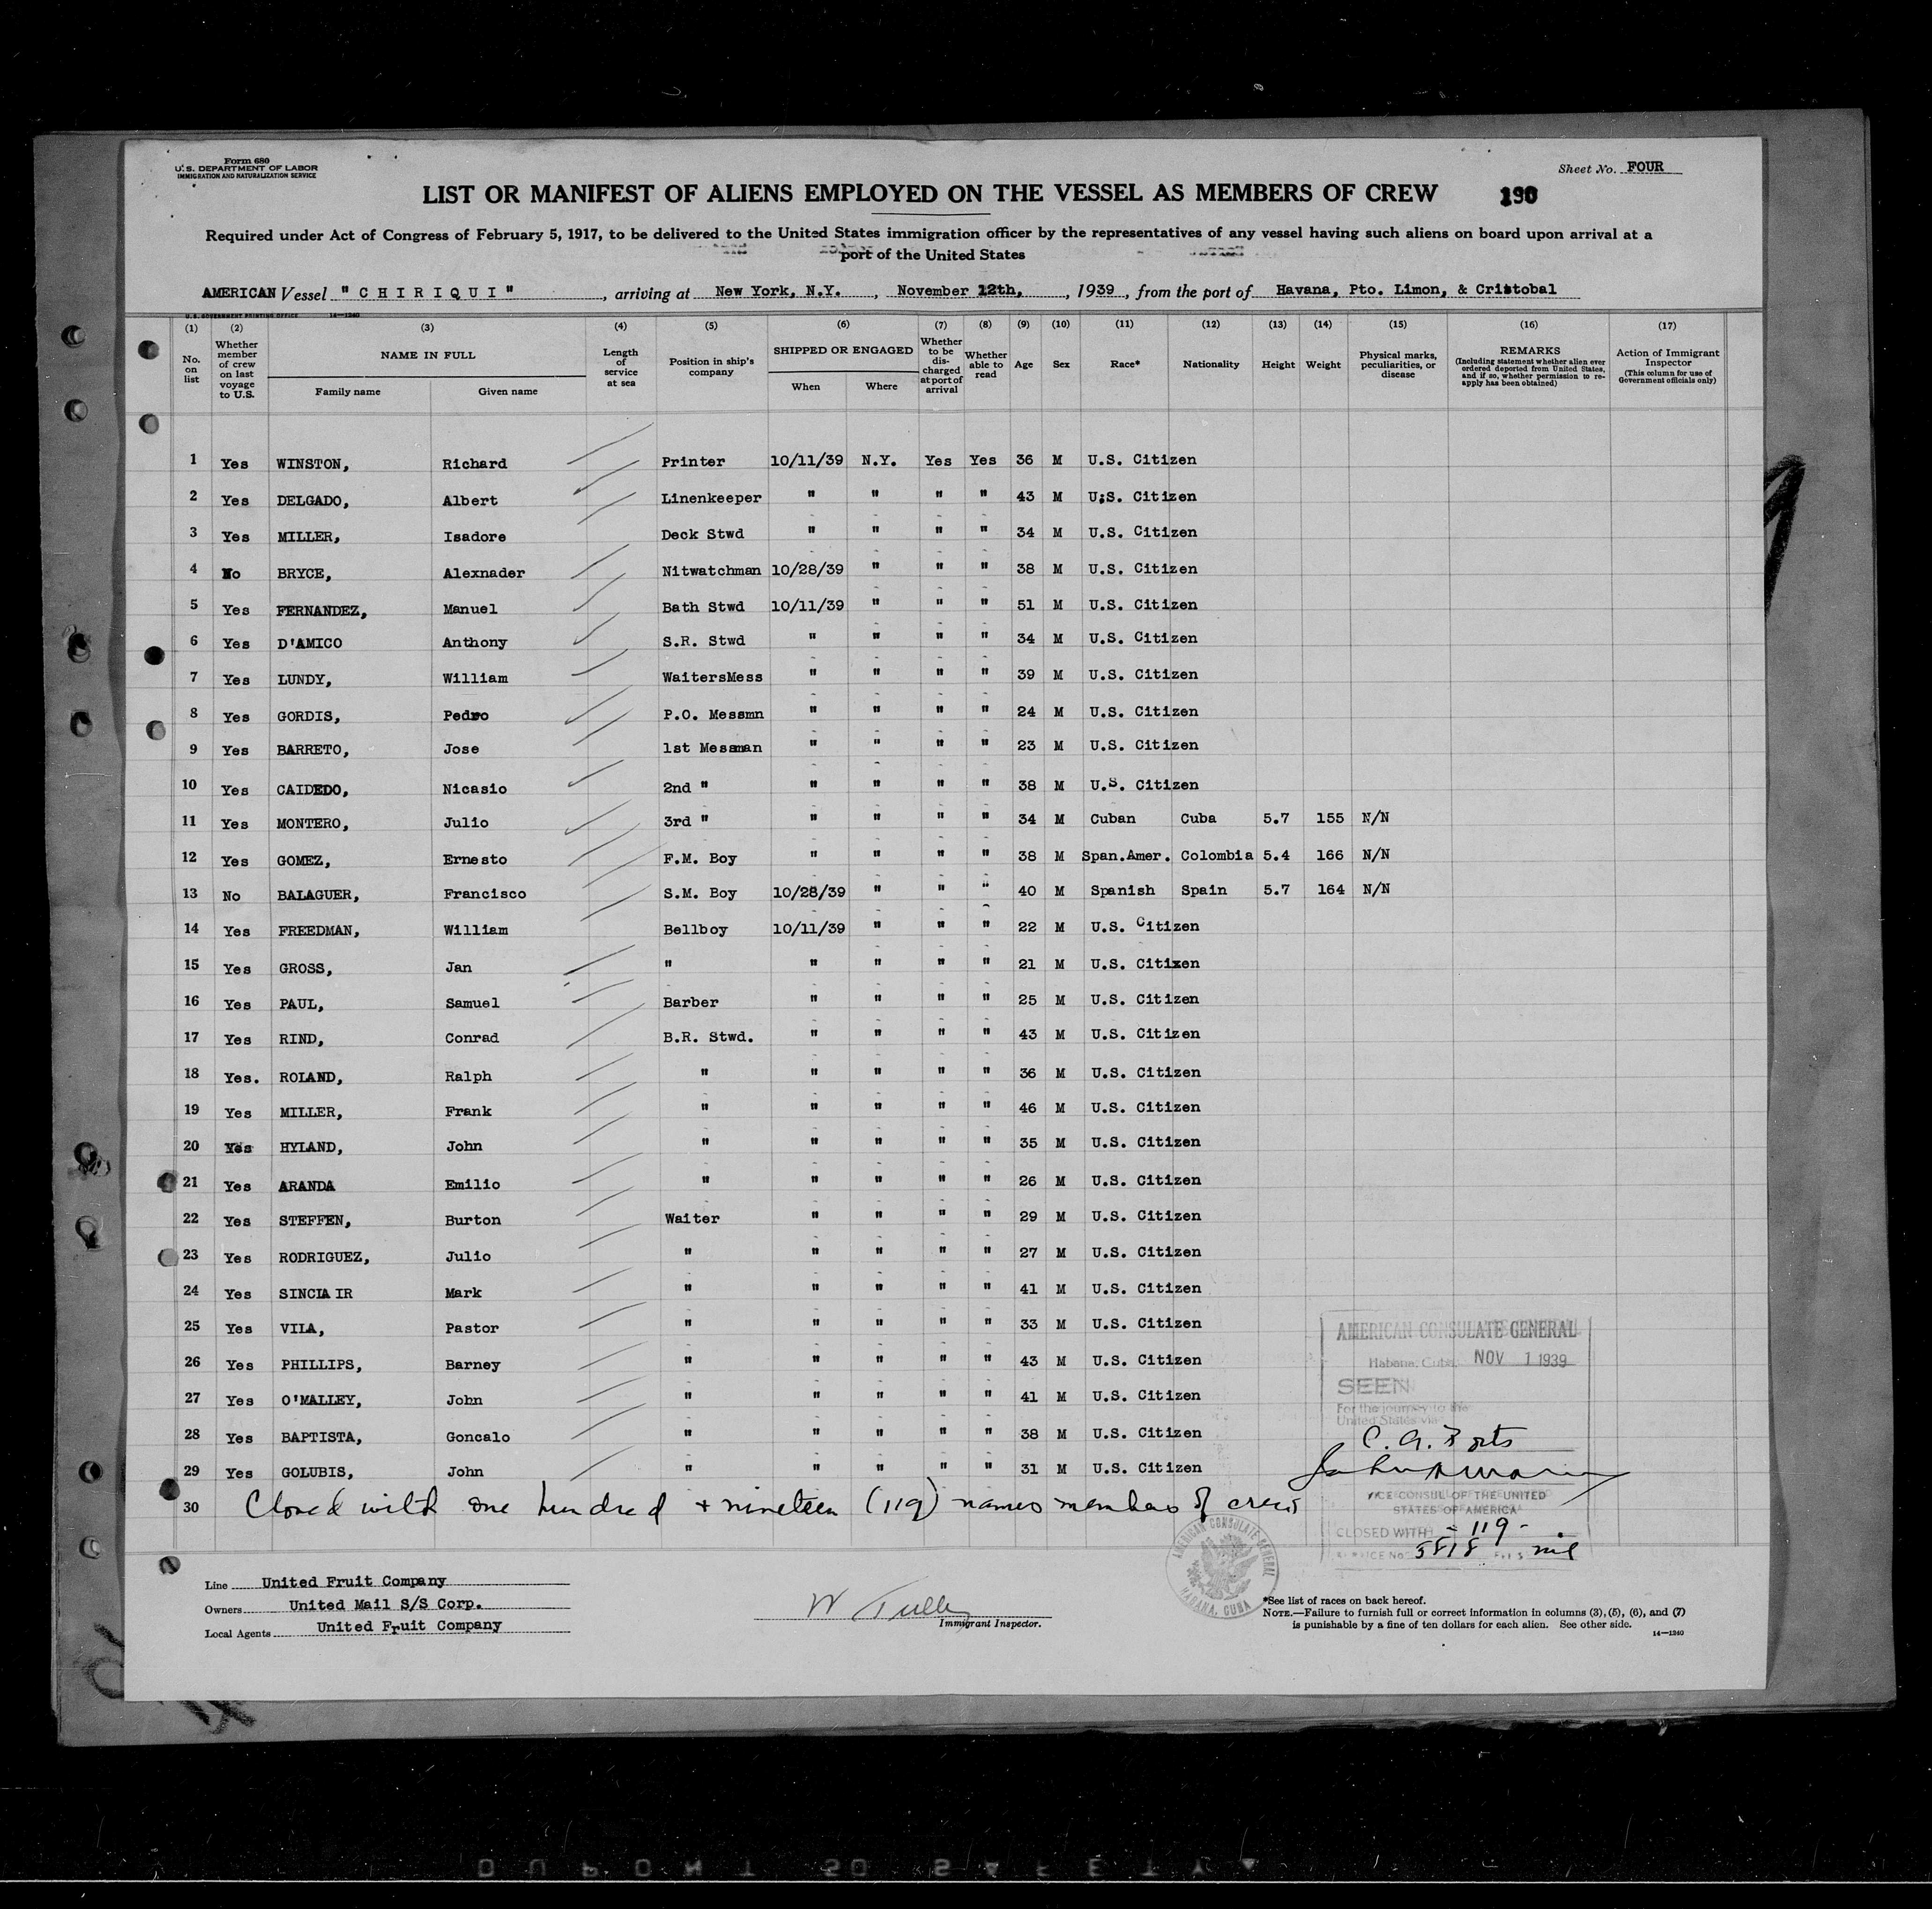 Form 680
U.S. DEPARTMENT OF LABOR
IMMIGRATION AND NATURALIZATION SERVICE
Sheet No. FOUR
LIST OR MANIFEST OF ALIENS EMPLOYED ON THE VESSEL AS MEMBERS OF CREW 190
Required under Act of Congress of February 5, 1917, to be delivered to the United States immigration officer by the representatives of any vessel having such aliens on board upon arrival at a
port of the United States
AMERICAN Vessel "CHIRIQUI", arriving at New York, N.Y., November 12th, , 1939, from the port of Havana, Pto. Limon, & Cristobal
U.S. GOVERNMENT PRINTING OFFICE 14—1240
(1) (2) (3) (4) (5) (6) (7) (8) (9) (10) (11) (12) (13) (14) (15) (16) (17)
No. on list
Whether member of crew on last voyage to U.S.
NAME IN FULL
Family name Given name
Length of service at sea
Position in ship's company
SHIPPED OR ENGAGED
When Where
Whether to be discharged at port of arrival
Whether able to read
Age Sex Race* Nationality Height Weight
Physical marks, peculiarities, or disease
REMARKS
(Including statement whether alien ever ordered deported from United States, and if so, whether permission to re-apply has been obtained)
Action of Immigrant Inspector
(This column for use of Government officials only)
1 Yes WINSTON, Richard Printer 10/11/39 N.Y. Yes Yes 36 M U.S. Citizen
2 Yes DELGADO, Albert Linenkeeper " " " " 43 M U;S. Citizen
3 Yes MILLER, Isadore Deck Stwd " " " " 34 M U.S. Citizen
4 No BRYCE, Alexnader Nitwatchman 10/28/39 " " " 38 M U.S. Citizen
5 Yes FERNANDEZ, Manuel Bath Stwd 10/11/39 " " " 51 M U.S. Citizen
6 Yes D'AMICO Anthony S.R. Stwd " " " " 34 M U.S. Citizen
7 Yes LUNDY, William WaitersMess " " " " 39 M U.S. Citizen
8 Yes GORDIS, Pedro P.O. Messmn " " " " 24 M U.S. Citizen
9 Yes BARRETO, Jose 1st Messman " " " " 23 M U.S. Citizen
10 Yes CAIDEDO, Nicasio 2nd " " " " " 38 M U.S. Citizen
11 Yes MONTERO, Julio 3rd " " " " " 34 M Cuban Cuba 5.7 155 N/N
12 Yes GOMEZ, Ernesto F.M. Boy " " " " 38 M Span.Amer. Colombia 5.4 166 N/N
13 No BALAGUER, Francisco S.M. Boy 10/28/39 " " " 40 M Spanish Spain 5.7 164 N/N
14 Yes FREEDMAN, William Bellboy 10/11/39 " " " 22 M U.S. Citizen
15 Yes GROSS, Jan " " " " " 21 M U.S. Citixen
16 Yes PAUL, Samuel Barber " " " " 25 M U.S. Citizen
17 Yes RIND, Conrad B.R. Stwd. " " " " 43 M U.S. Citizen
18 Yes. ROLAND, Ralph " " " " " 36 M U.S. Citizen
19 Yes MILLER, Frank " " " " " 46 M U.S. Citizen
20 Yes HYLAND, John " " " " " 35 M U.S. Citizen
21 Yes ARANDA Emilio " " " " " 26 M U.S. Citizen
22 Yes STEFFEN, Burton Waiter " " " " 29 M U.S. Citizen
23 Yes RODRIGUEZ, Julio " " " " " 27 M U.S. Citizen
24 Yes SINCIAIR Mark " " " " " 41 M U.S. Citizen
25 Yes VILA, Pastor " " " " " 33 M U.S. Citizen
26 Yes PHILLIPS, Barney " " " " " 43 M U.S. Citizen
27 Yes O'MALLEY, John " " " " " 41 M U.S. Citizen
28 Yes BAPTISTA, Goncalo " " " " " 38 M U.S. Citizen
29 Yes GOLUBIS, John " " " " " 31 M U.S. Citizen
30 Closed with one hundred + nineteen (119) names members of crew
AMERICAN CONSULATE GENERAL
Habana, Cuba, NOV 1 1939
SEEN
For the journey to the
United States via
VICE CONSUL OF THE UNITED
STATES OF AMERICA
CLOSED WITH - 119 -
SERVICE No 5818 nil
AMERICAN CONSULATE GENERAL HABANA, CUBA
Line United Fruit Company
Owners United Mail S/S Corp.
Local Agents United Fruit Company
W Tully
Immigrant Inspector.
*See list of races on back hereof.
NOTE.—Failure to furnish full or correct information in columns (3), (5), (6), and (7)
is punishable by a fine of ten dollars for each alien. See other side.
14—1240
DUPONT SAFETY